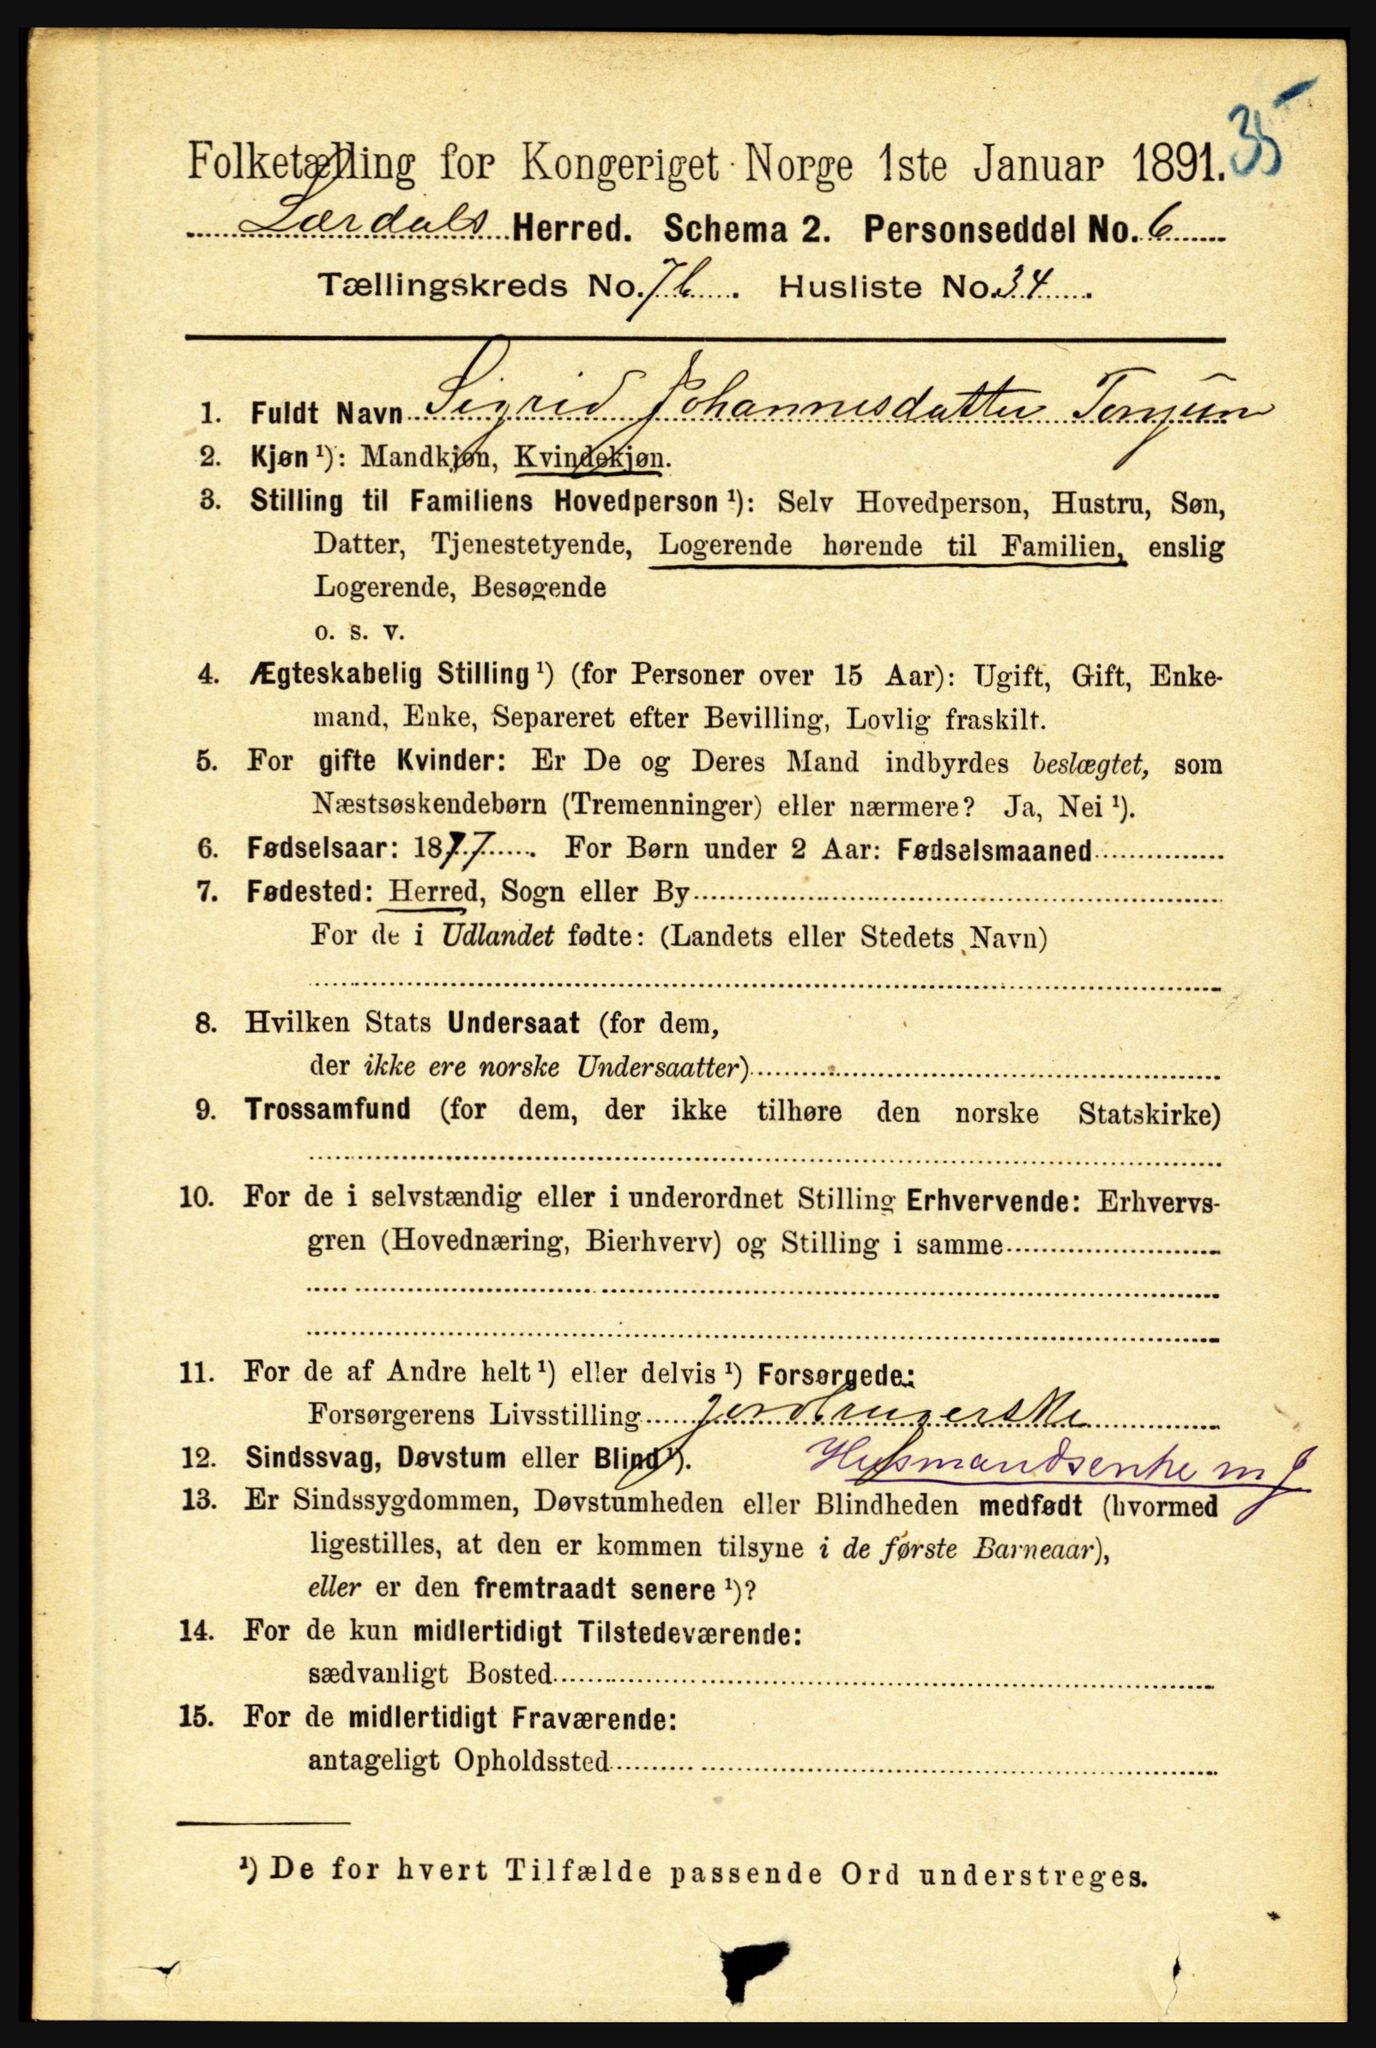 35
Folketælling for Kongeriget Norge 1ste Januar 1891.
Lærdals Herred. Schema 2. Personseddel No. 6
Tællingskreds No. 7b. Husliste No. 34.
1. Fuldt Navn Sigrid Johannesdatter
2. Kjøn ¹): Mandkjøn, Kvindekjøn.
3. Stilling til Familiens Hovedperson ¹): Selv Hovedperson, Hustru, Søn,
Datter, Tjenestetyende, Logerende hørende til Familien, enslig
Logerende, Besøgende
o. s. v.
4. Ægteskabelig Stilling ¹) (for Personer over 15 Aar): Ugift, Gift, Enke-
mand, Enke, Separeret efter Bevilling, Lovlig fraskilt.
5. For gifte Kvinder: Er De og Deres Mand indbyrdes beslægtet, som
Næstsøskendebørn (Tremenninger) eller nærmere? Ja, Nei ¹).
6. Fødselsaar: 1877. For Børn under 2 Aar: Fødselsmaaned
7. Fødested: Herred, Sogn eller By
For de i Udlandet fødte: (Landets eller Stedets Navn)
8. Hvilken Stats Undersaat (for dem,
der ikke ere norske Undersaatter)
9. Trossamfund (for dem, der ikke tilhøre den norske Statskirke)
10. For de i selvstændig eller i underordnet Stilling Erhvervende: Erhvervs-
gren (Hovednæring, Bierhverv) og Stilling i samme
11. For de af Andre helt ¹) eller delvis ¹) Forsørgede:
Forsørgerens Livsstilling Jordbrugerske
12. Sindssvag, Døvstum eller Blind ¹). Husmandsenke m J
13. Er Sindssygdommen, Døvstumheden eller Blindheden medfødt (hvormed
ligestilles, at den er kommen tilsyne i de første Barneaar),
eller er den fremtraadt senere ¹)?
14. For de kun midlertidigt Tilstedeværende:
sædvanligt Bosted
15. For de midlertidigt Fraværende:
antageligt Opholdssted
¹) De for hvert Tilfælde passende Ord understreges.